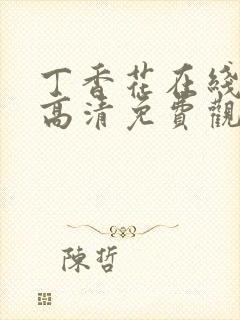 丁香花在綫
高清免費觀
陳哲